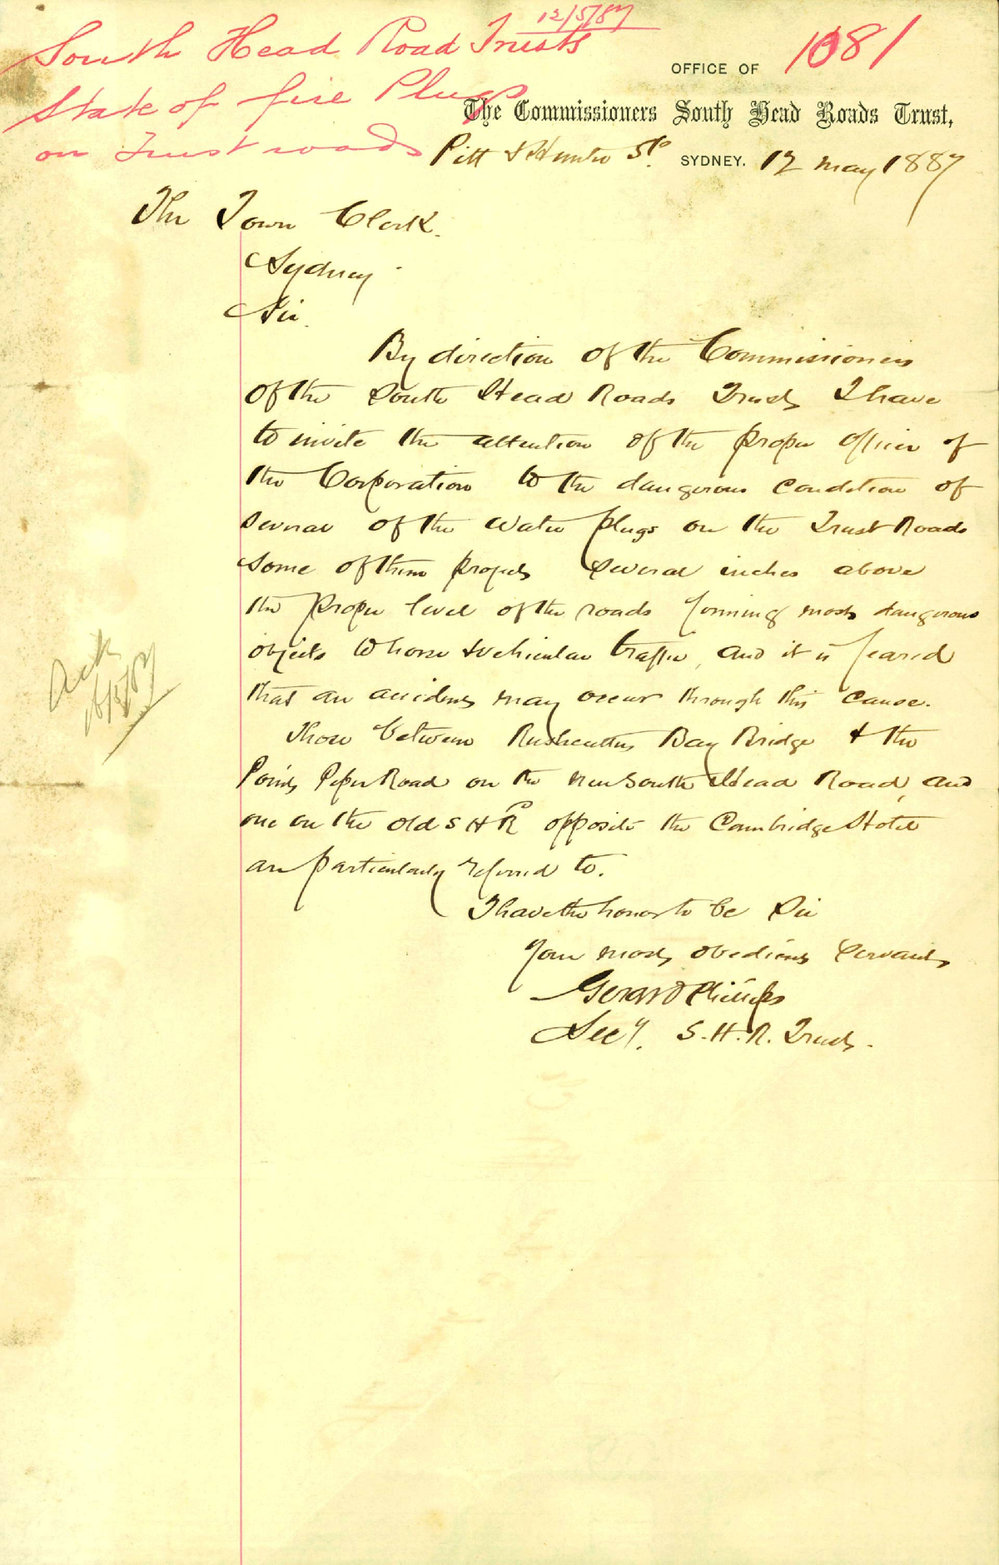 12/5/87
South Head Road Trusts
1081
State of fire Plugs
on Trust roads
OFFICE OF
The Commissioners South Head Roads Trust,
Pitt & Hunter Sts. SYDNEY. 12 May 1887
The Town Clerk.
Sydney
Sir.
By direction of the Commissioners
of the South Head Roads Trust, I have
to invite the attention of the proper officer of
the Corporation to the dangerous condition of
several of the water plugs on the Trust Roads
Some of them project several inches above
the proper level of the roads forming most dangerous
objects to horse & vehicular traffic, and it is feared
that an accident may occur through this cause.
Those between Rushcutters Bay Bridge & the
Point Piper Road on the new South Head Road, and
one on the old S H Rd opposite the Cambridge Hotel
are particularly referred to.
I have the honor to be Sir
Your most obedient Servant
Gerard Phillips
Secy. S. H. R. Trust.
Ack
16/5/87